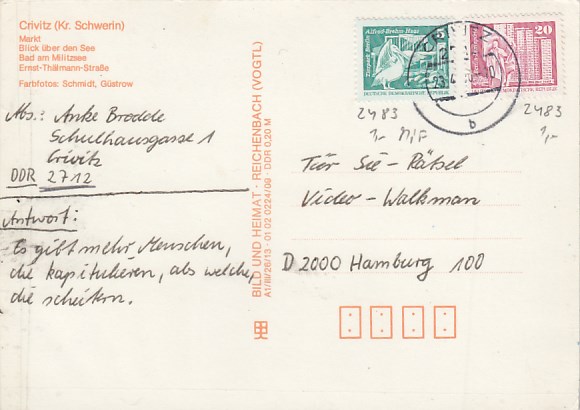 Crivitz (Kr. Schwerin)
Markt
Blick über den See
Bad am Militzsee
Ernst-Thälmann-Straße
Farbfotos: Schmidt, Güstrow
Abs.: Anke Brodde
Schulhausgasse 1
Crivitz
DDR 2712
Antwort:
Es gibt mehr Menschen,
die kapitulieren, als welche,
die scheitern.
BILD UND HEIMAT · REICHENBACH (VOGTL)
A1/III/26/13 · 01 02 0224/09 · DDR 0,20 M
Tierpark Berlin
Alfred-Brehm-Haus
DEUTSCHE DEMOKRATISCHE REPUBLIK
20
CRIVITZ
b
2483
1,-
2483
1,-
Tür Sie-Rätsel
Video-Walkman
D 2000 Hamburg 100